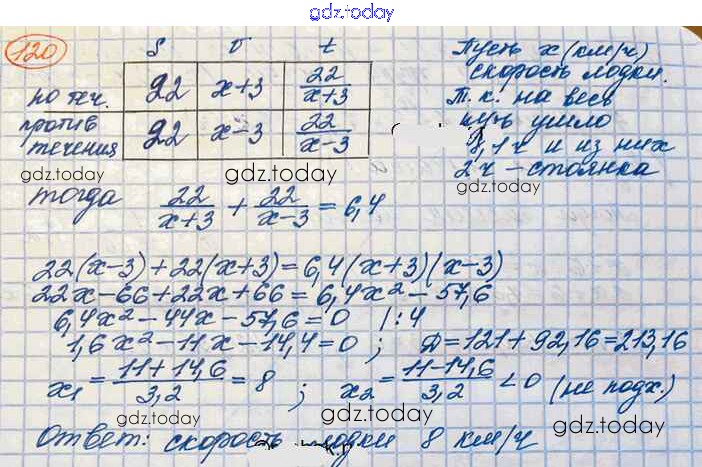 gdz.today
120
S v t
по теч. 22 x+3 22/(x+3)
против течения 22 x-3 22/(x-3)
Пусть x (км/ч)
скорость лодки.
Т.к. на весь
путь ушло
и из них
2 ч - стоянка
gdz.today gdz.today gdz.today
тогда 22/(x+3) + 22/(x-3) = 6,4
gdz.today
22(x-3)+22(x+3)=6,4(x+3)(x-3)
22x-66+22x+66=6,4x²-57,6
6,4x²-44x-57,6=0 |:4
1,6x²-11x-14,4=0; Д=121+92,16=213,16
x₁=(11+14,6)/3,2=8; x₂=(11-14,6)/3,2<0 (не подх.)
gdz.today gdz.today gdz.today
Ответ: скорость лодки 8 км/ч